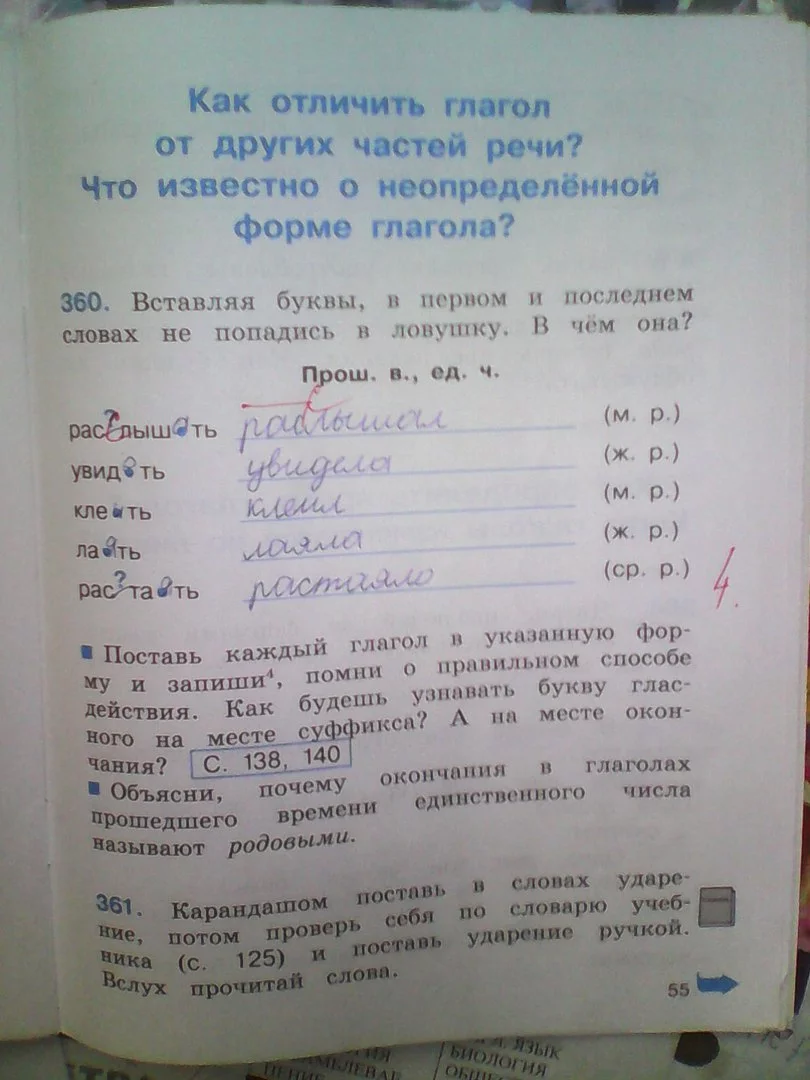 Как отличить глагол
от других частей речи?
Что известно о неопределённой
форме глагола?
360. Вставляя буквы, в первом и последнем
словах не попадись в ловушку. В чём она?
Прош. в., ед. ч.
расслышать раслышал (м. р.)
с
увидеть увидела (ж. р.)
клеить клеил (м. р.)
лаять лаяла (ж. р.)
рас?таять растаяло (ср. р.)
4.
Поставь каждый глагол в указанную фор-
му и запиши⁴, помни о правильном способе
действия. Как будешь узнавать букву глас-
ного на месте суффикса? А на месте окон-
чания? С. 138, 140
Объясни, почему окончания в глаголах
прошедшего времени единственного числа
называют родовыми.
361. Карандашом поставь в словах ударе-
ние, потом проверь себя по словарю учеб-
ника (с. 125) и поставь ударение ручкой.
Вслух прочитай слова.
55
ЯЗЫК
БИОЛОГИЯ